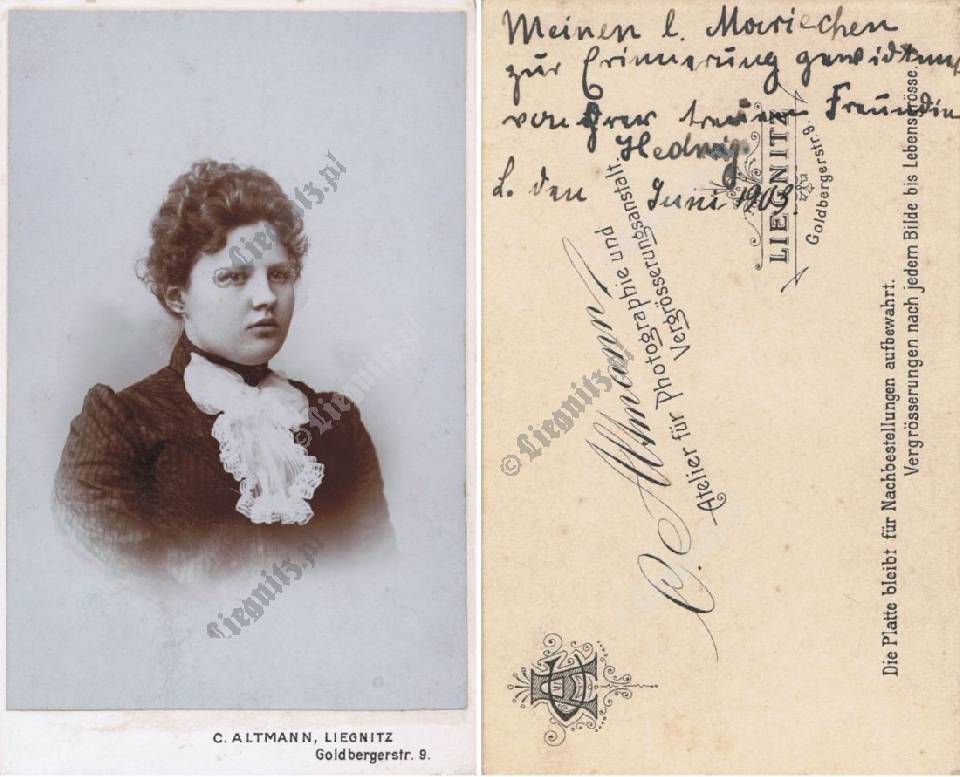 C. ALTMANN, LIEGNITZ
Goldbergerstr. 9.
Meinen l. Mariechen
zur Erinnerung gewidtmet
von Ihrer treuen Freundin
Hedwig.
L. den Juni 1903.
C. Altmann
Atelier für Photographie und
Vergrösserungsanstalt
LIEGNITZ
Goldbergerstr. 9.
Die Platte bleibt für Nachbestellungen aufbewahrt.
Vergrösserungen nach jedem Bilde bis Lebensgrösse.
© Liegnitz.pl
© Liegnitz.pl
Liegnitz.pl
© Liegnitz.pl